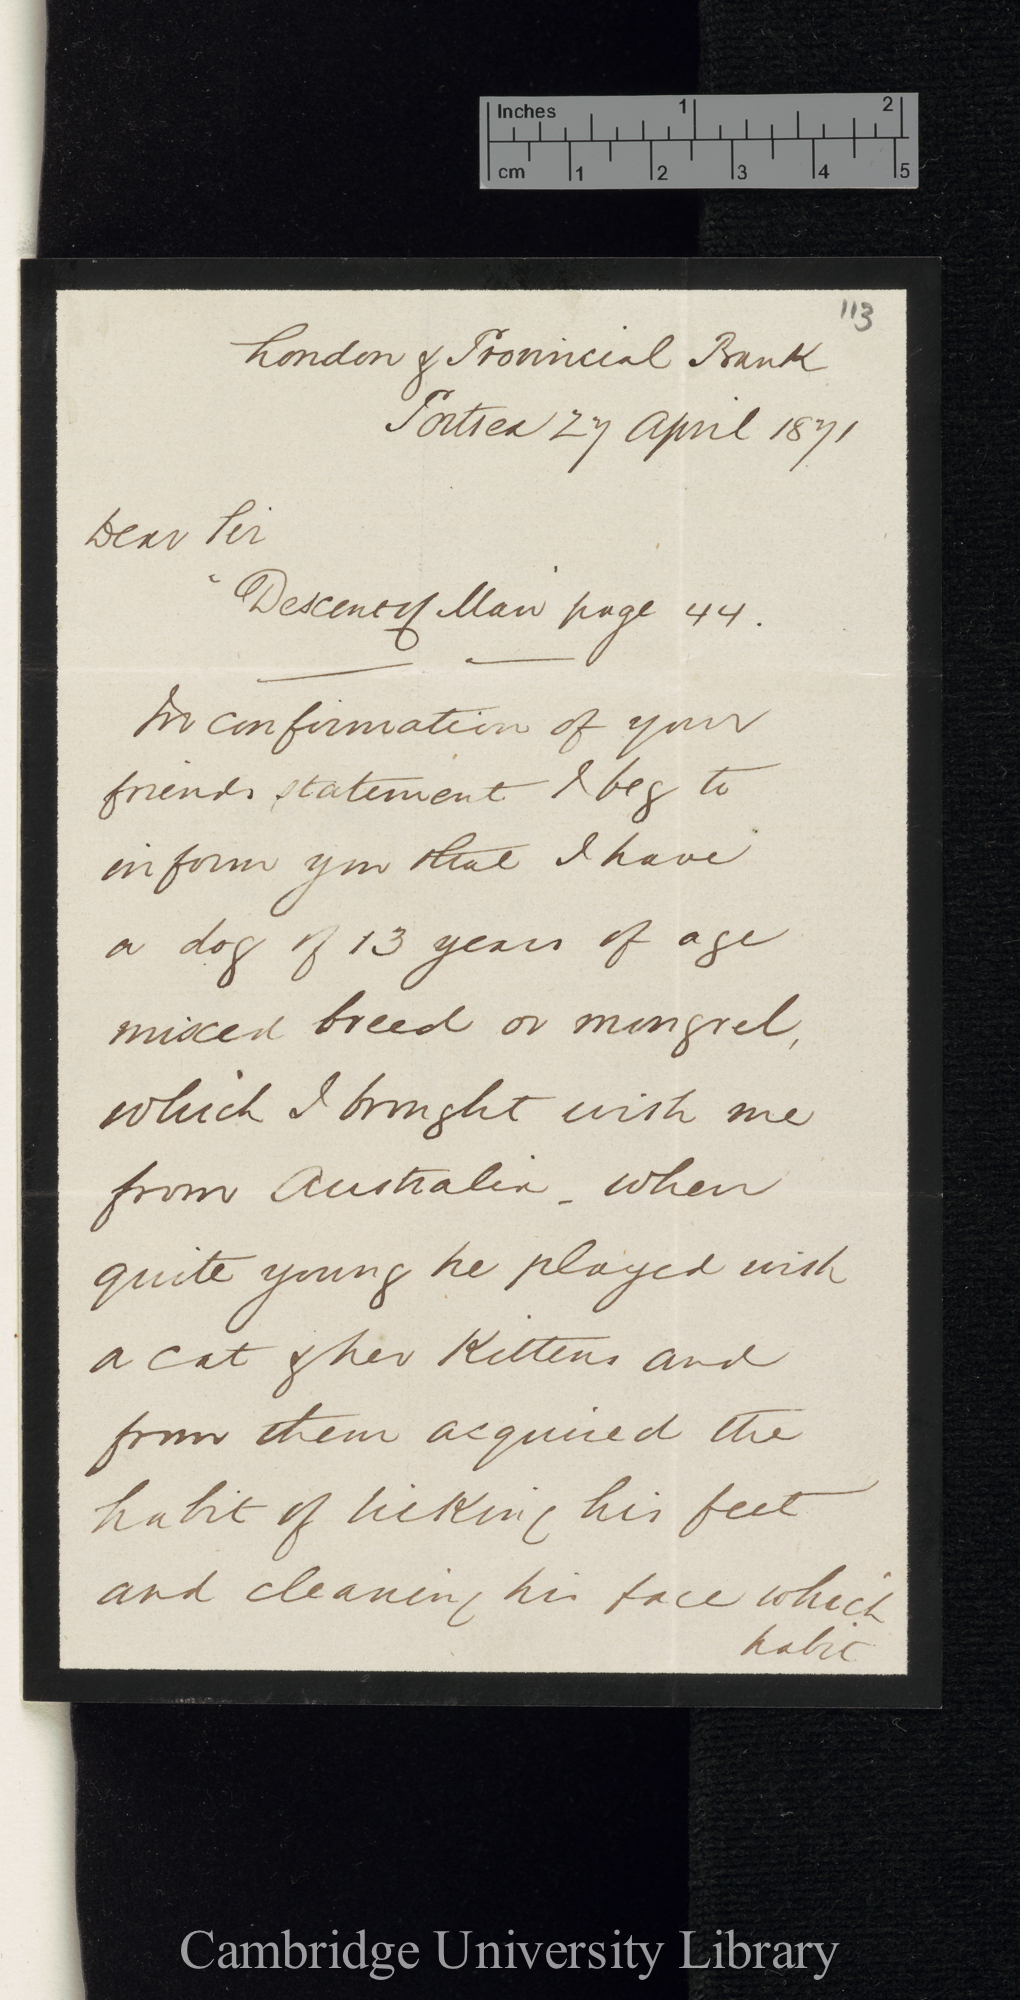 Inches 1 2
cm 1 2 3 4 5
113
London & Provincial Bank
Portsea 27 April 1871
Dear Sir
"Descent of Man' page 44.
In confirmation of your
friends statement I beg to
inform you that I have
a dog of 13 years of age
mixed breed or mongrel,
which I brought with me
from Australia - when
quite young he played with
a cat & her Kittens and
from them acquired the
habit of licking his feet
and cleaning his face which
habit
Cambridge University Library